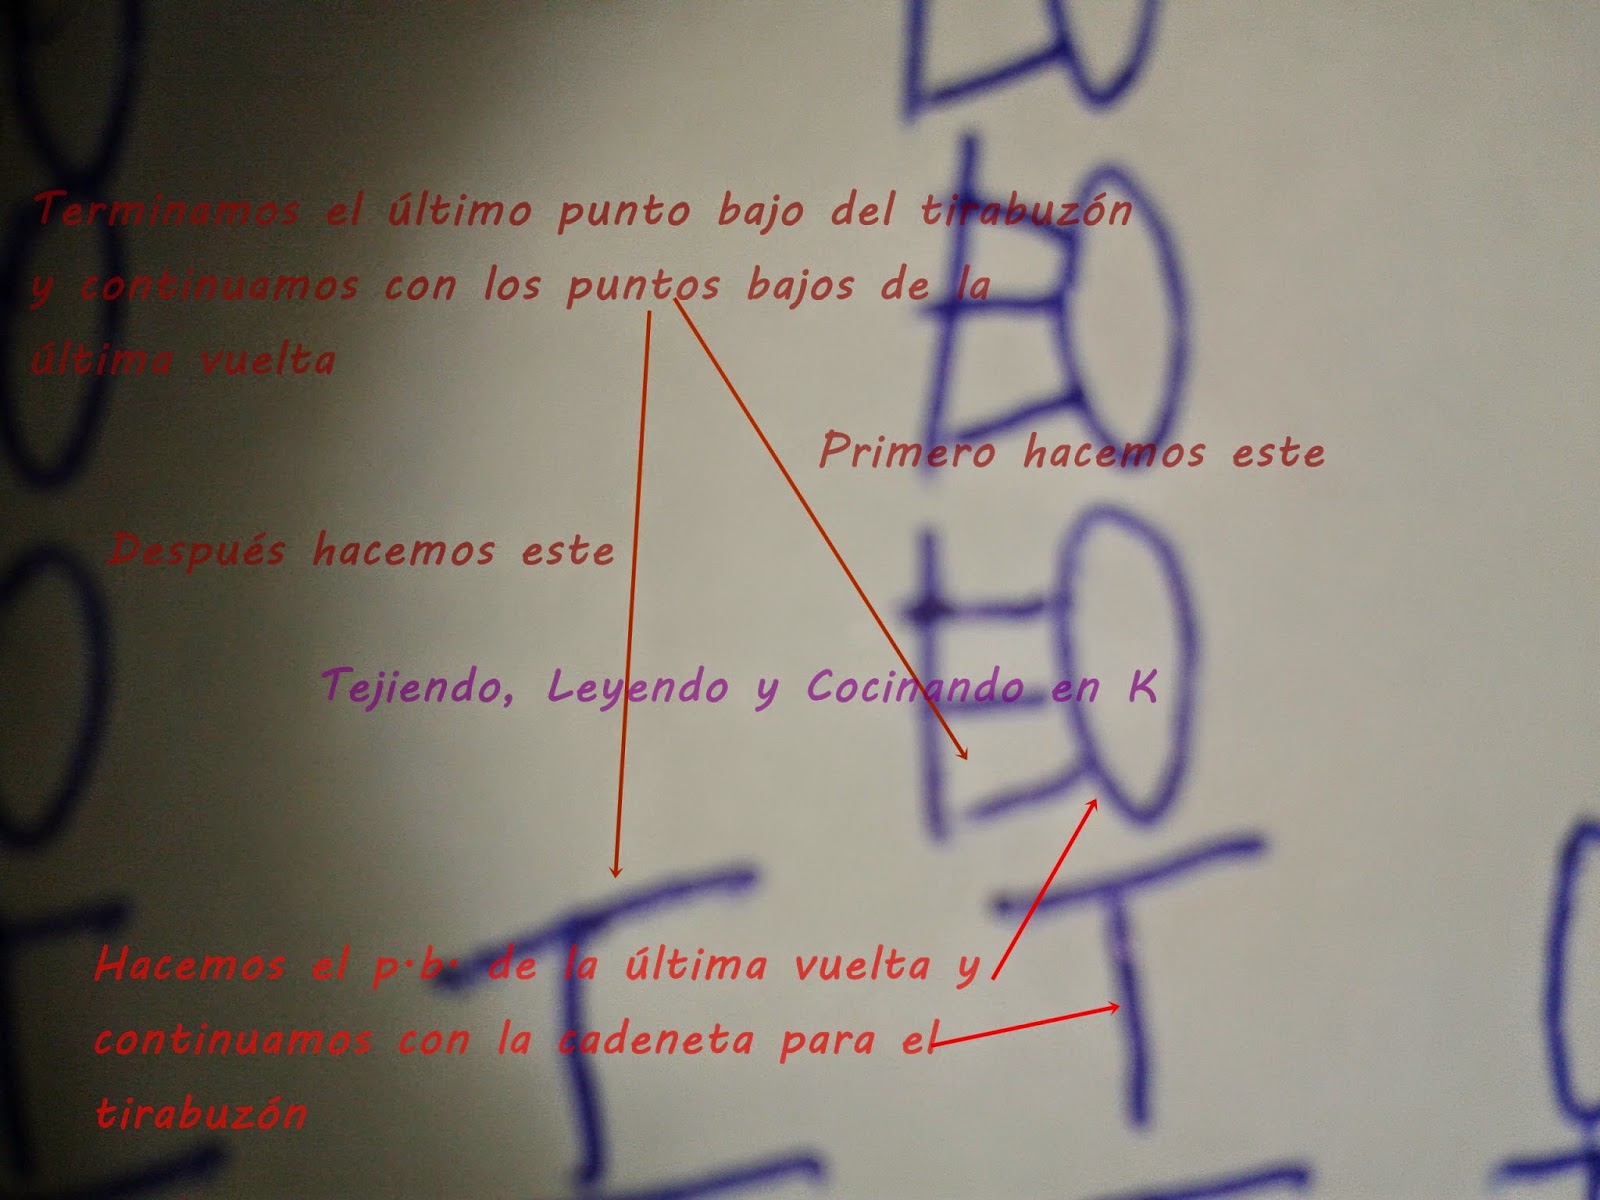 Terminamos el último punto bajo del tirabuzón
y continuamos con los puntos bajos de la
última vuelta
Primero hacemos este
Después hacemos este
Tejiendo, Leyendo y Cocinando en K
Hacemos el p.b. de la última vuelta y
continuamos con la cadeneta para el
tirabuzón